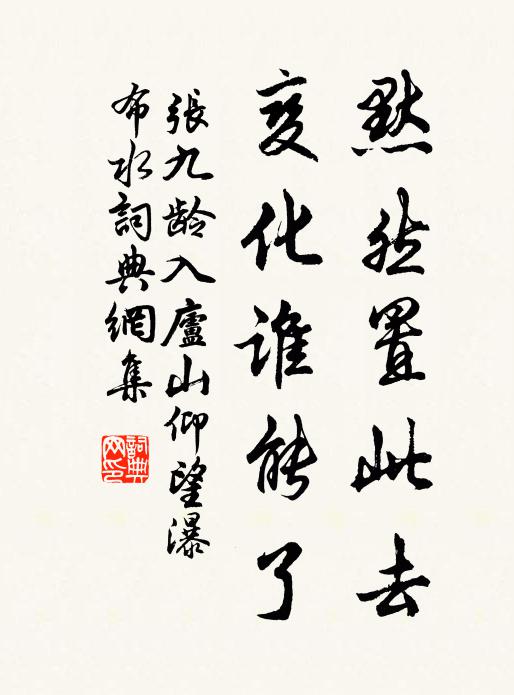 默然置此去
变化谁能了
張九龄入廬山仰望瀑
布水詞典網集
詞典网印